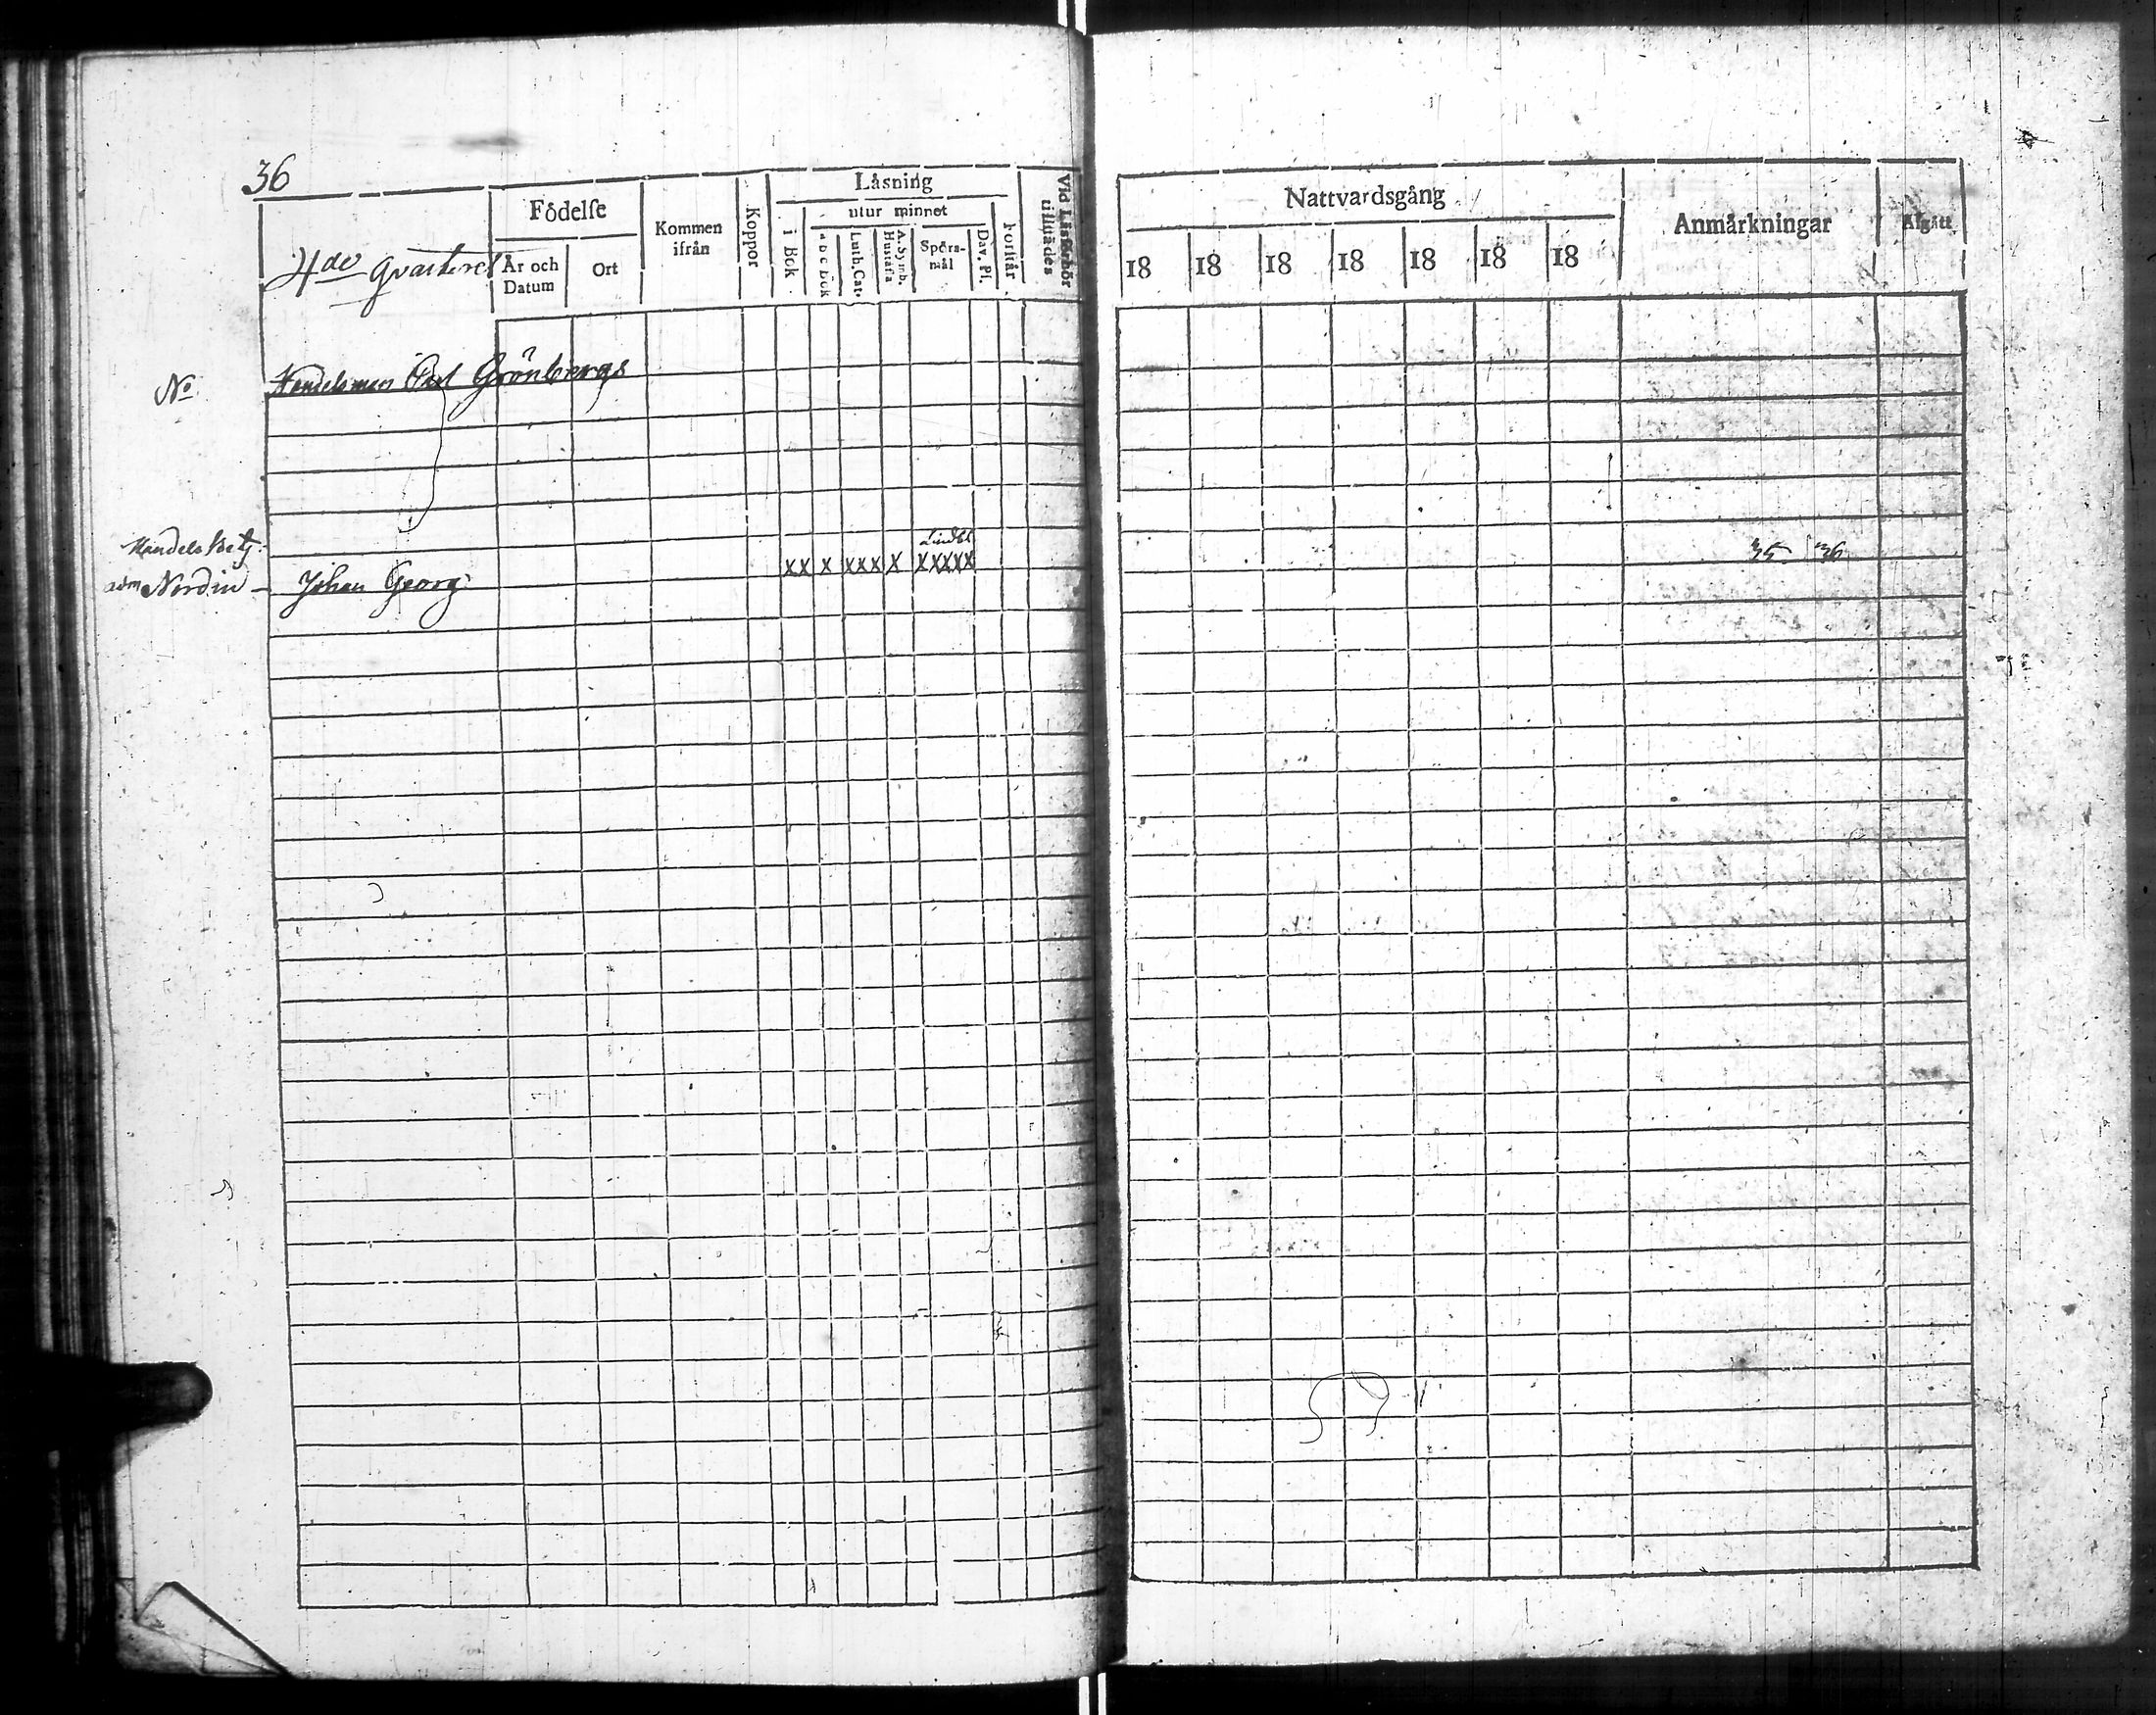 36
4de Qvarteret
Födelse
År och Datum
Ort
Kommen ifrån
Koppor
Läsning
i Bok.
utur minnet
a b c bok
Luth. Cat.
A. Symb. Hustafla
Spörs-mål
Dav. Pf.
Förstår.
Vid Läsförhör tillstädes
Nattvardsgång
18 18 18 18 18 18 18
Anmärkningar
Afgått
No Handelsman Grönbergs
Handels Betj: Lindbl
Nordin – Johan Georg: xx x xxx x xxxxx 35 36